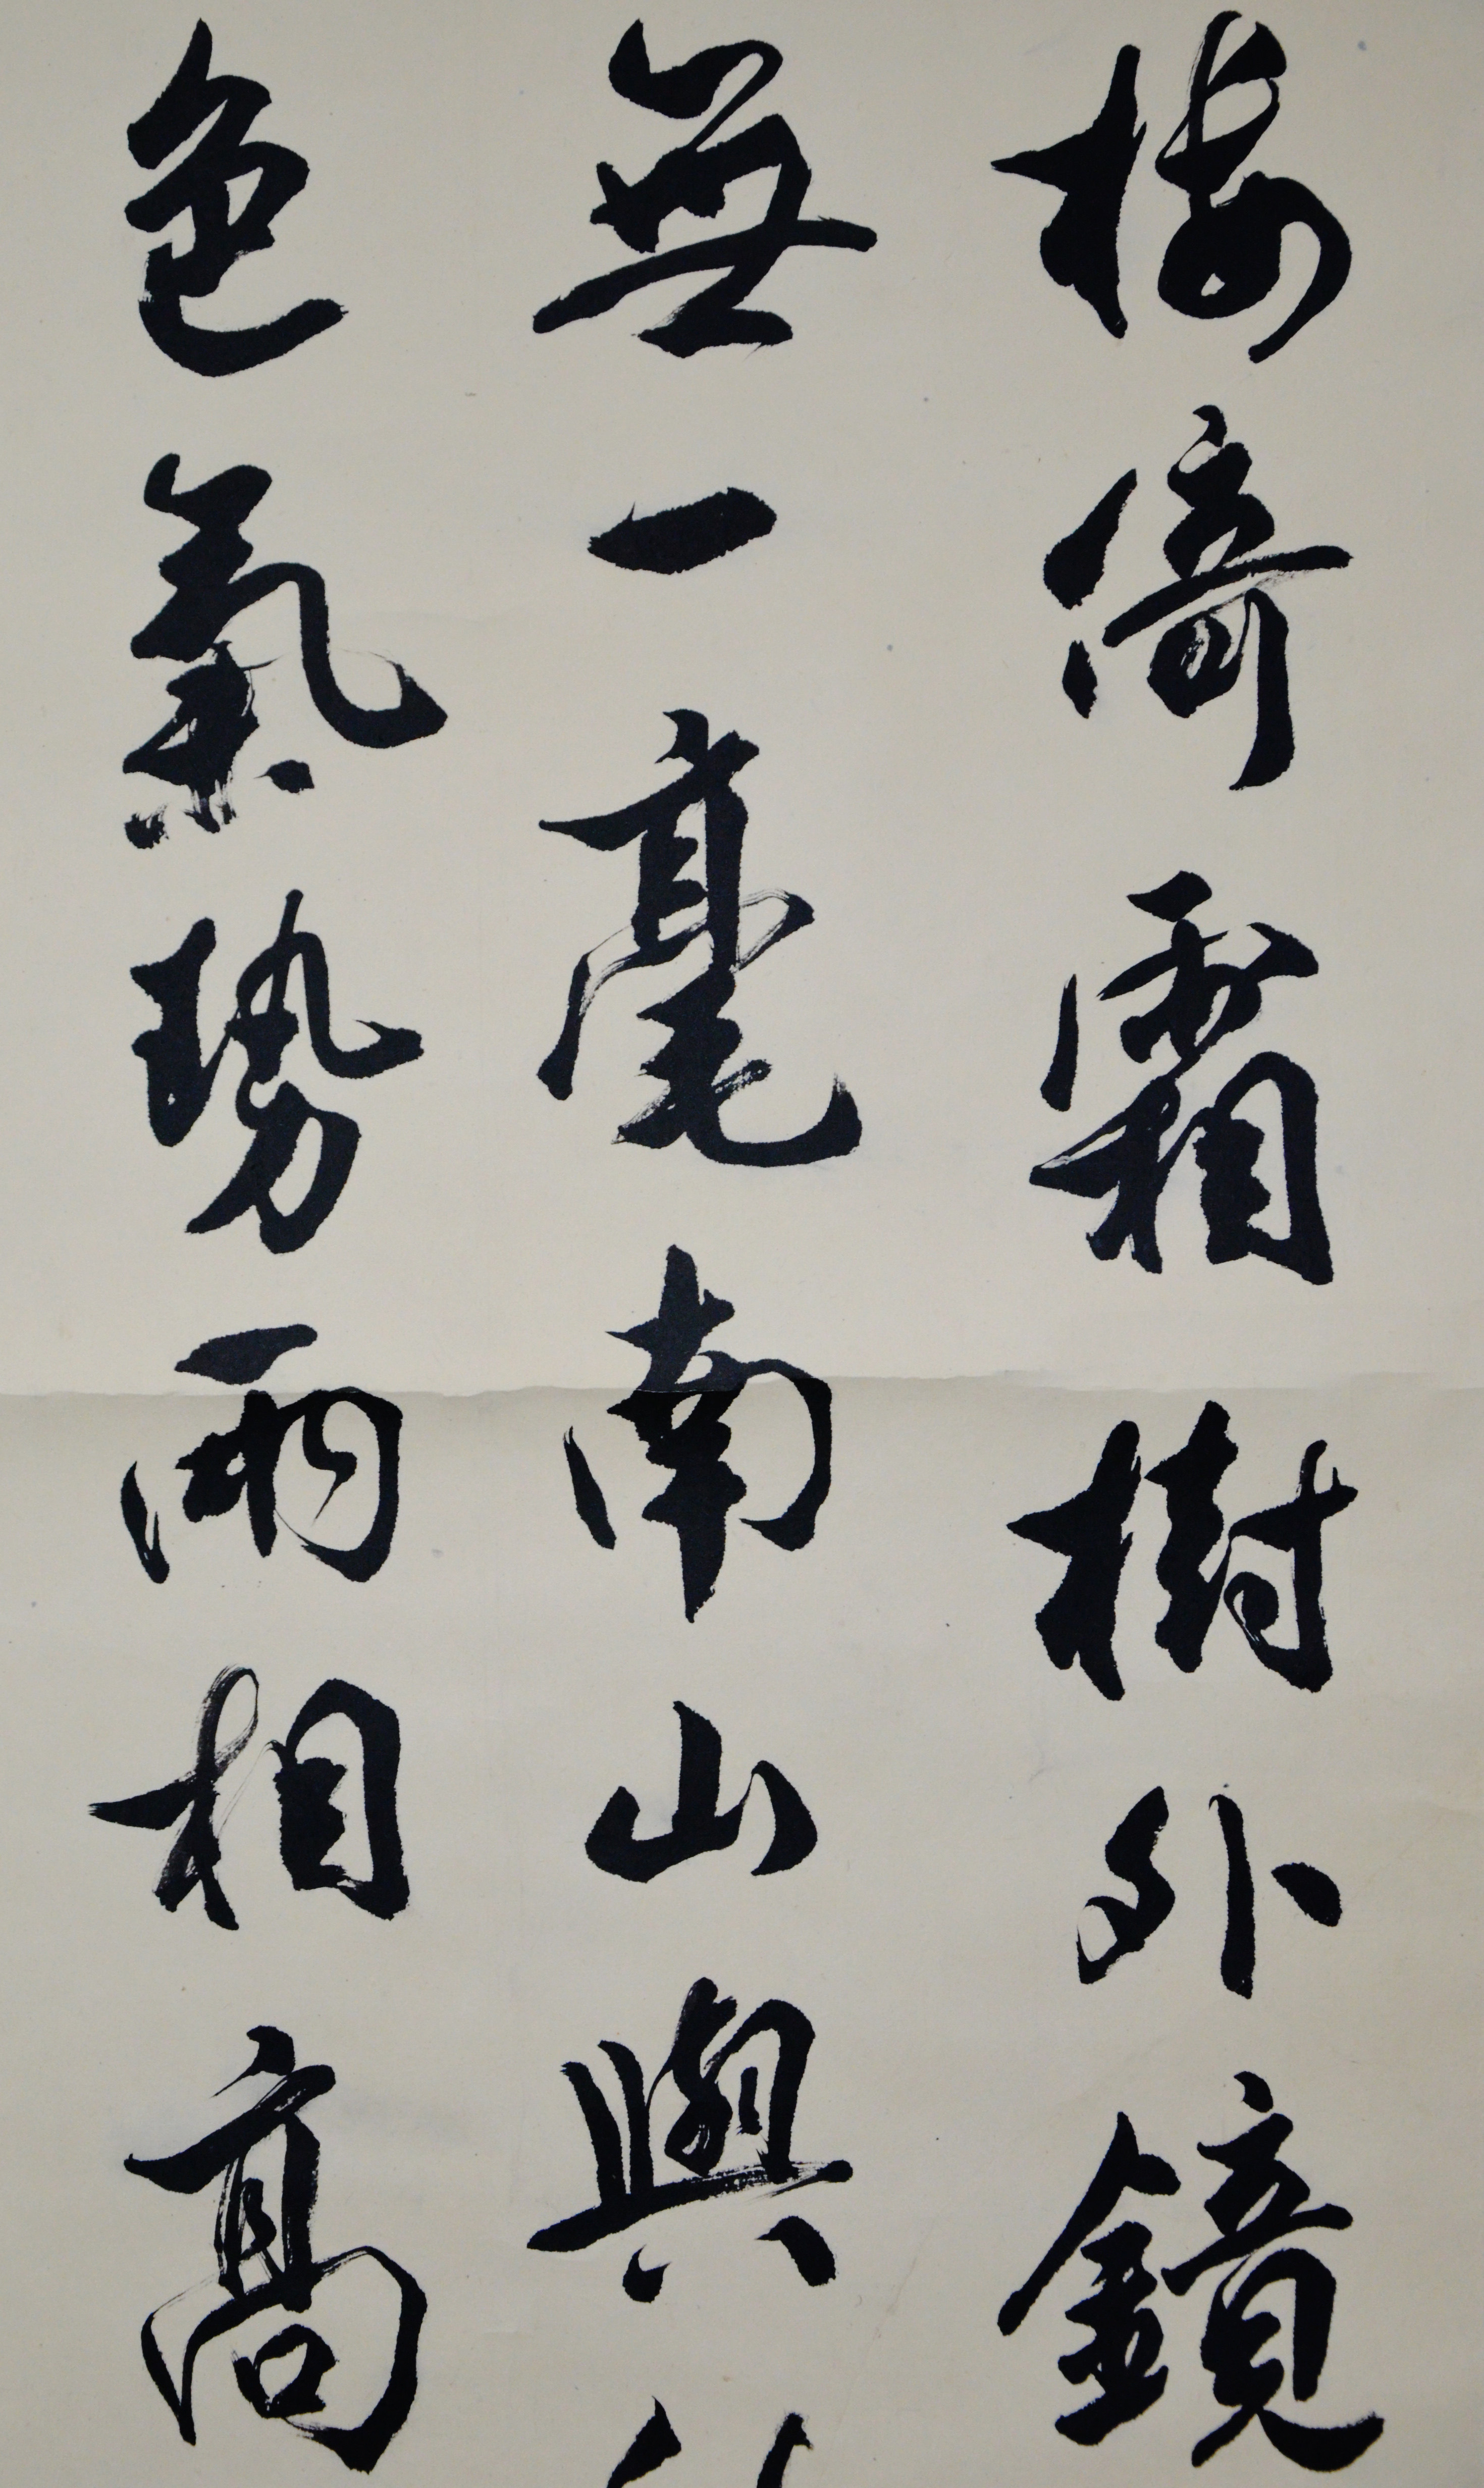 樓倚霜樹外鏡
無一毫南山與
色氣勢兩相高